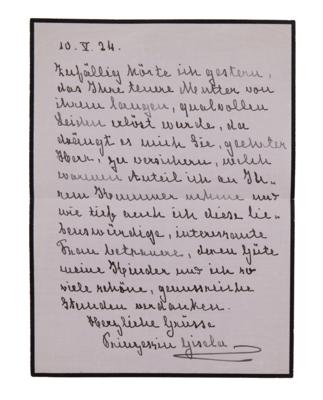 10. V. 24.
Zufällig hörte ich gestern,
das Ihre teuere Mutter von
ihrem langen, qualvollen
Leiden erlöst wurde, da
drängt es mich Sie, geehrter
Herr, zu versichern, welch
warmen Anteil ich an Ih-
rem Kummer nehme und
wie tief auch ich diese lie-
benswürdige, interessante
Frau betrauere, deren Güte
meine Kinder und ich so
viele schöne, genussreiche
Stunden verdanken.
Herzliche Grüsse
Prinzessin Gisela